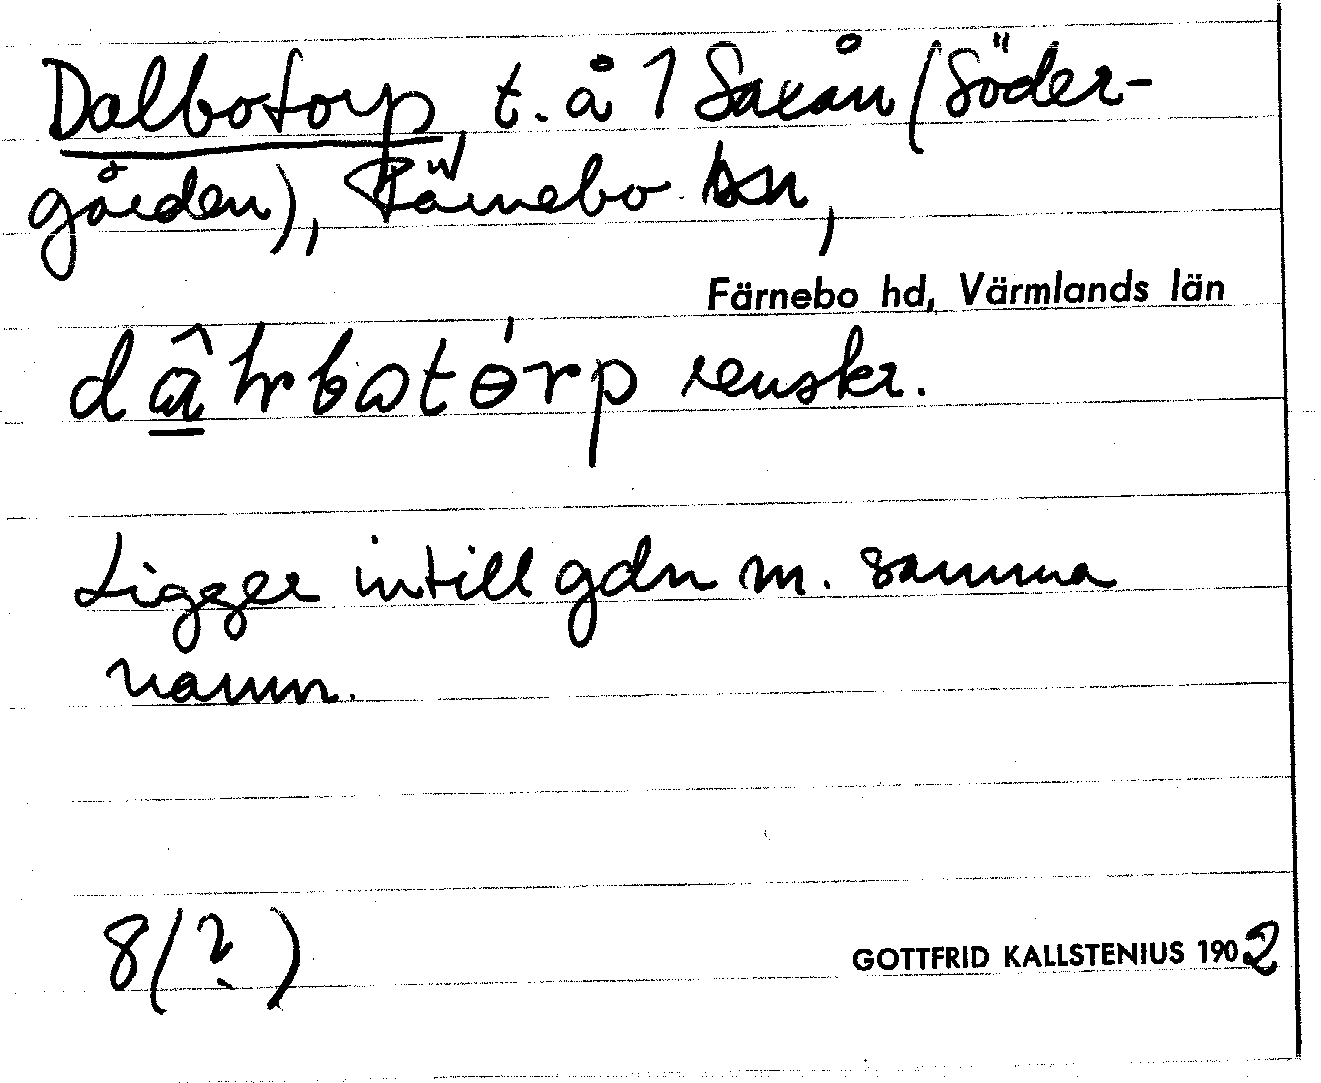 Dalbotorp, t. å 1 Saxån (Söder-
gården), Färnebo sn,
Färnebo hd, Värmlands län
renskr.
Ligger intill gdn m. samma
namn.
8(?)
GOTTFRID KALLSTENIUS 1902